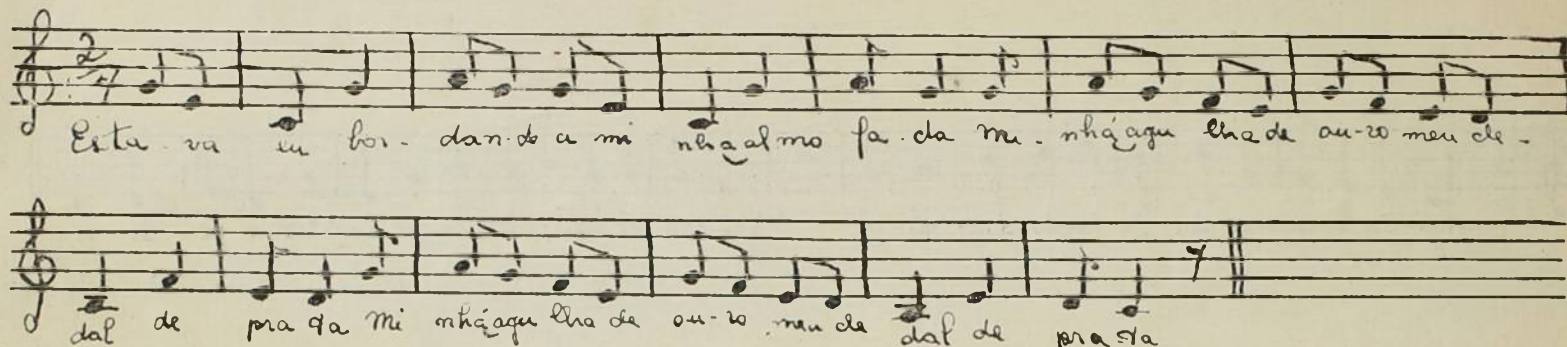 2/4
Esta-va eu bor-dan-do a mi nha al mo fa-da mi-nha agu lha de ou-ro meu de-
dal de pra ta mi nha agu lha de ou-ro meu de dal de pra-ta